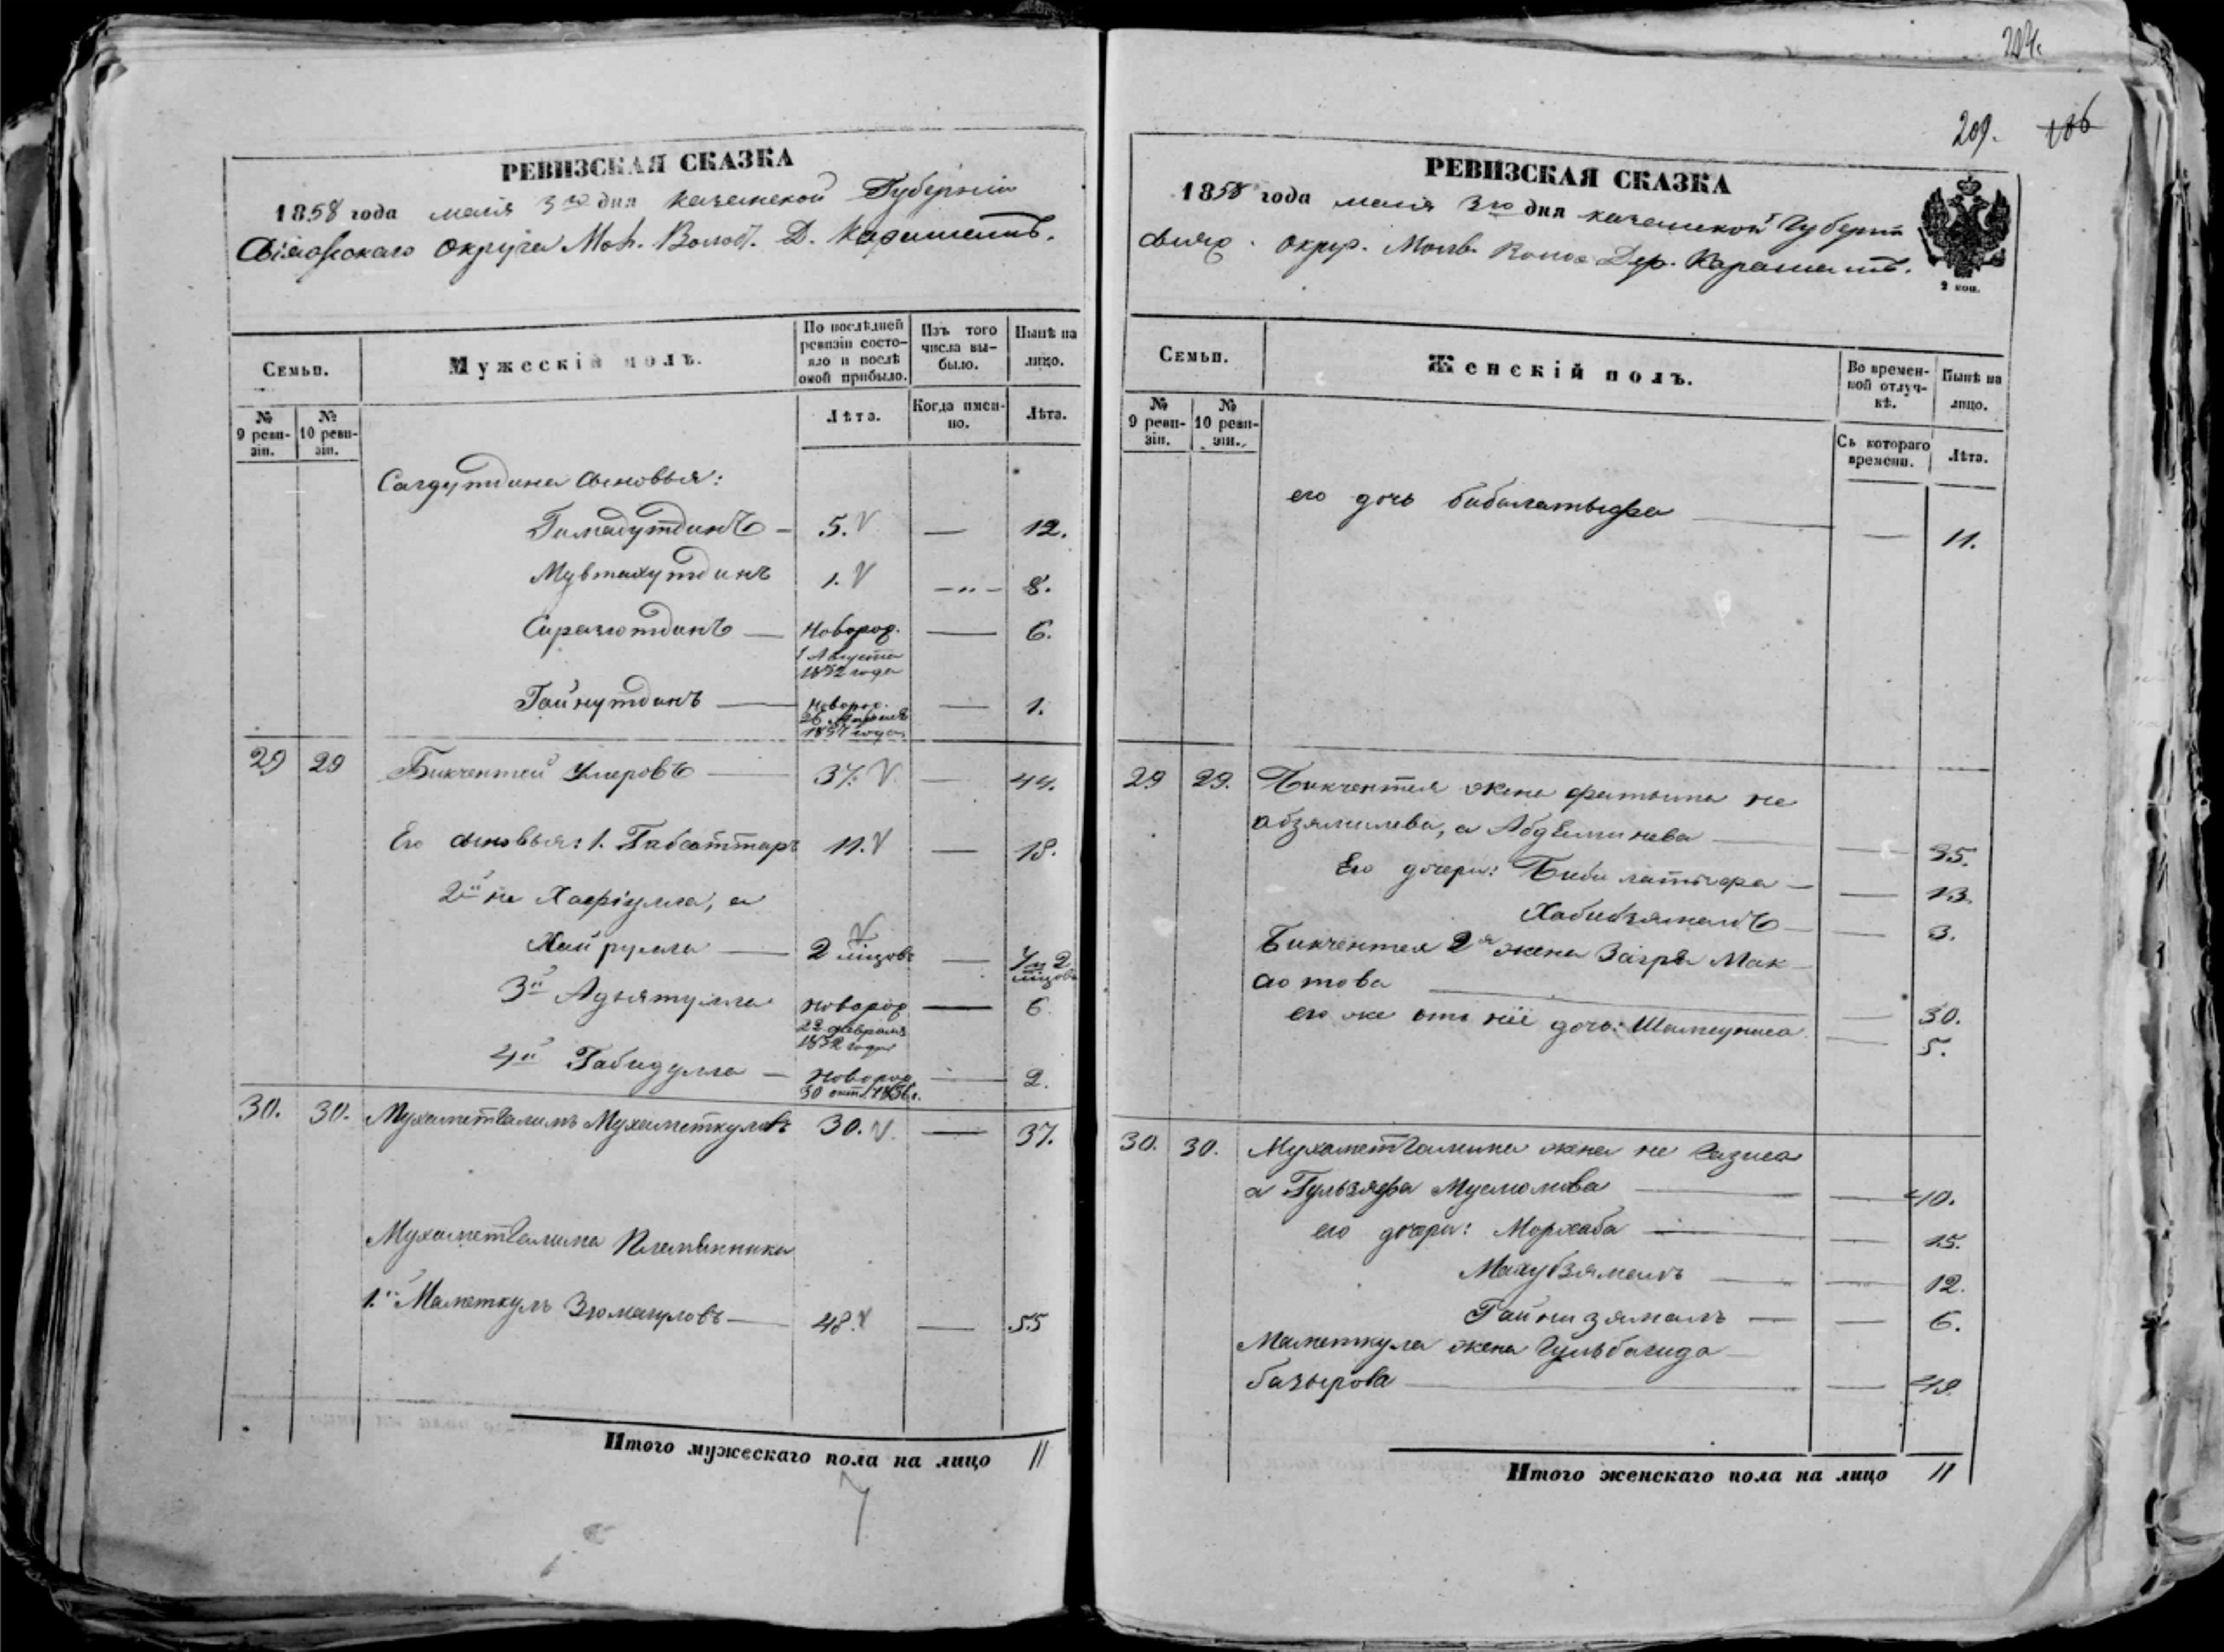 224.
209. 186
РЕВИЗСКАЯ СКАЗКА
1858 года маія 3го дня Казанской Губерніи
Свіяжскаго округа Мол. Волост. Д. Карашамъ.
Семьи.
Мужескій полъ.
По послѣдней ревизіи состояло и послѣ оной прибыло.
Изъ того числа выбыло.
Нынѣ на лицо.
№ 9 ревизіи.
№ 10 ревизіи.
Лѣта.
Когда именно.
Лѣта.
Сагдутдина сыновья:
Гимадутдинъ — 5. V — 12.
Мувтахутдинъ 1. V — „ — 8.
Сиразютдинъ — Новорож. — 6.
1 Августа
1852 года
Гайнутдинъ — Новорож. — 1.
26 Апреля
1857 года
29 29 Бикчентей Умеровъ — 37. V — 44.
Его сыновья: 1. Габсаттаръ 11. V — 18.
2й не Хафіулла, а
Хайрулла — 2 міцовъ V — 7 и 2 міцовъ
3й Адіятулла Новорож — 6.
22 февраля
1852 года
4й Габидулла — Новорож — 2.
30 окт. 1856 г.
30. 30. Мухаметгалимъ Мухаметкуловъ 30. V. — 37.
Мухаметгалима Племянники
1й Маметкулъ Зюмагуловъ — 48. V — 55
Итого мужескаго пола на лицо 11
РЕВИЗСКАЯ СКАЗКА
1858 года маія 3го дня казанской Губерніи
Свіяж. округ. Молв. Волос Дер. Карашамъ.
2 коп.
Семьи.
Женскій полъ.
Во временной отлучкѣ.
Нынѣ на лицо.
№ 9 ревизіи.
№ 10 ревизіи.
Съ котораго времени.
Лѣта.
его дочь бибилатыфа — — 11.
29 29. Бикчентея жена фатыма не
абзямилева, а Абдѣлминева — — 35.
Его дочери: Биби латыфа — — 13.
Хабибзямалъ — — 3.
Бикчентея 2я жена Загря Мак-
сютова — — 30.
его же отъ неё дочь: Шамсуниса — 5.
30. 30. Мухаметгалима жена не Газиса
а Гульзяфа Муслюмова — — 40.
его дочери: Морхаба — — 15.
Махубзямалъ — — 12.
Гайнизямалъ — — 6.
Маметкула жена Гульбагида
базырова — — 48
Итого женскаго пола на лицо 11